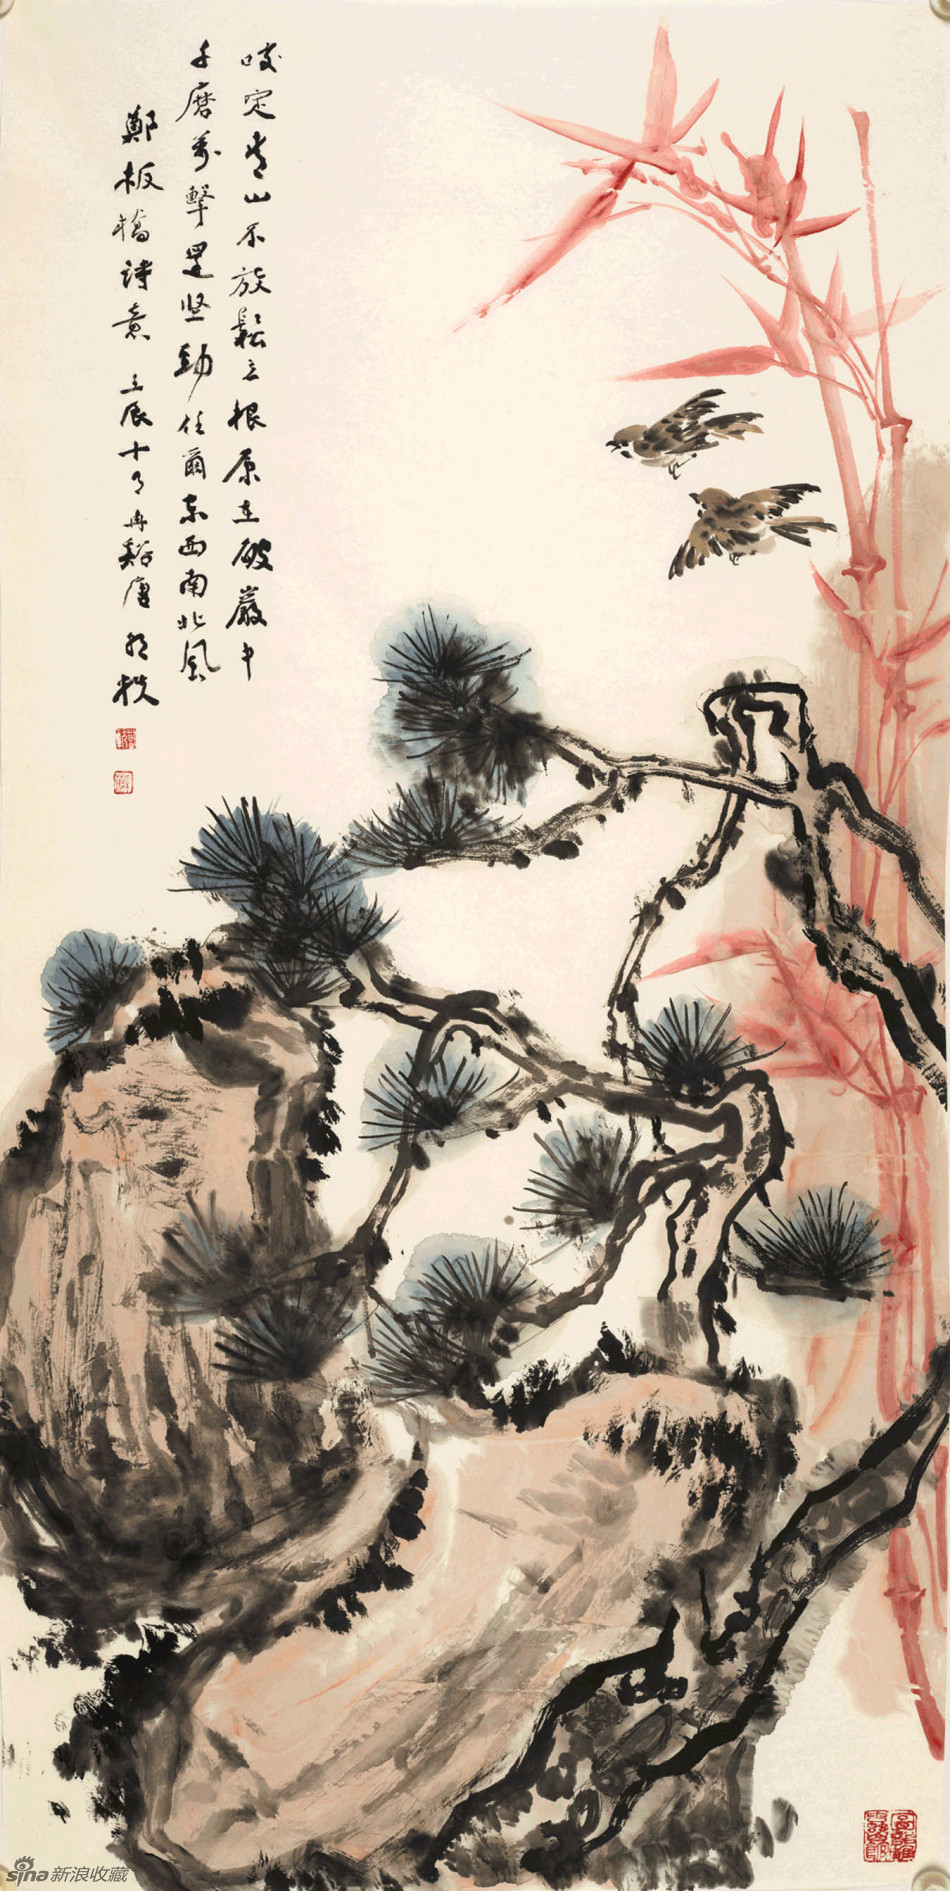 咬定青山不放鬆立根原在破巖中
千磨萬擊還坚勁任爾东西南北風
鄭板橋詩意 壬辰十月 冉谿唐
sina新浪收藏